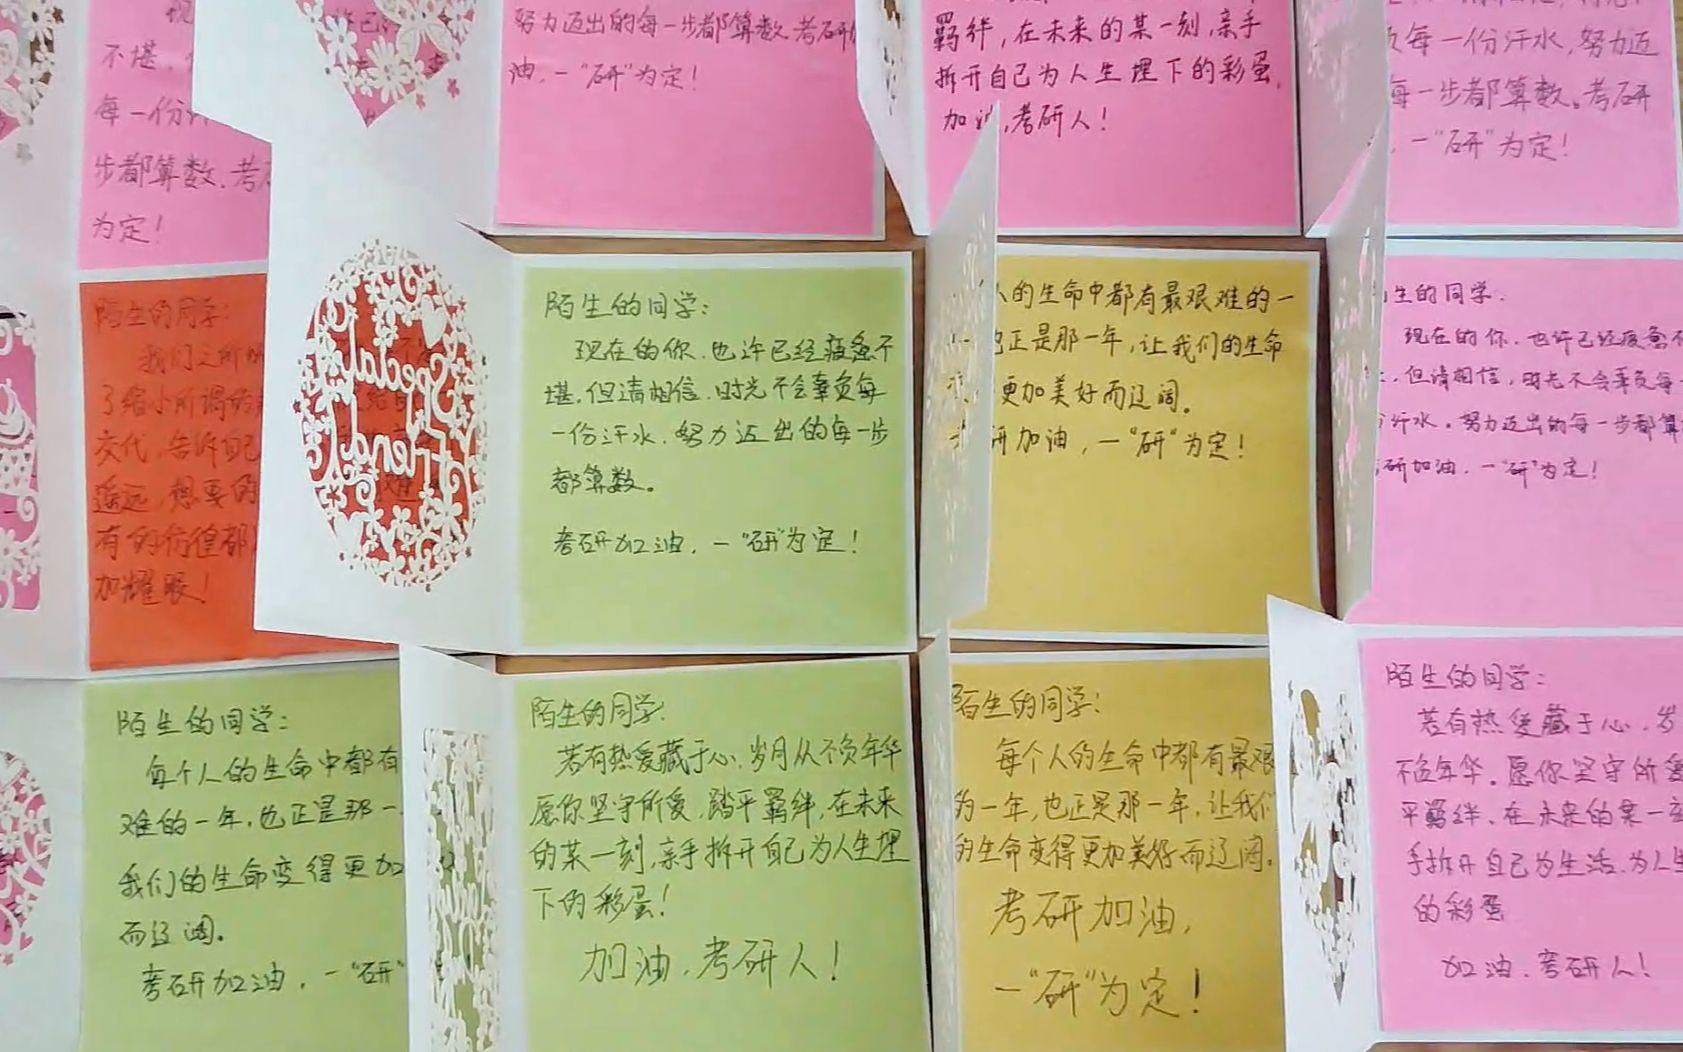 不堪,
每一份
步都算数.考
为定!
努力迈出的每一步都算数.考研
油,一"研"为定!
羁绊,在未来的某一刻,亲手
拆开自己为人生埋下的彩蛋,
加油,考研人!
每一份汗水,努力迈
每一步都算数。考研
,一"研"为定!
陌生的同学:
我们之所
了缩小所谓的
交代,告诉自己
遥远,想要的
有的彷徨都
加耀眼!
Special
Friend
陌生的同学:
现在的你.也许已经疲惫不
堪.但请相信.时光不会辜负每
一份汗水.努力迈出的每一步
都算数。
考研加油,一"研"为定!
人的生命中都有最艰难的一
也正是那一年,让我们的生命
更加美好而辽阔。
研加油,一"研"为定!
生的同学.
现在的你.也许已经疲惫不
,但请相信,时光不会辜负每
汗水。努力迈出的每一步都算
研加油.一"研"为定!
陌生的同学:
每个人的生命中都有
难的一年,也正是那一
我们的生命变得更加
而辽阔。
考研加油,一"研"
陌生的同学:
若有热爱藏于心,岁月从不负年华
愿你坚守所爱,踏平羁绊,在未来
的某一刻,亲手拆开自己为人生埋
下的彩蛋!
加油,考研人!
陌生的同学:
每个人的生命中都有最艰
为一年,也正是那一年,让我们
的生命变得更加美好而辽阔.
考研加油,
一"研"为定!
陌生的同学:
若有热爱藏于心.岁
不负年华.愿你坚守所爱
平羁绊.在未来的某一刻
手拆开自己为生活.为人生
的彩蛋
加油.考研人!